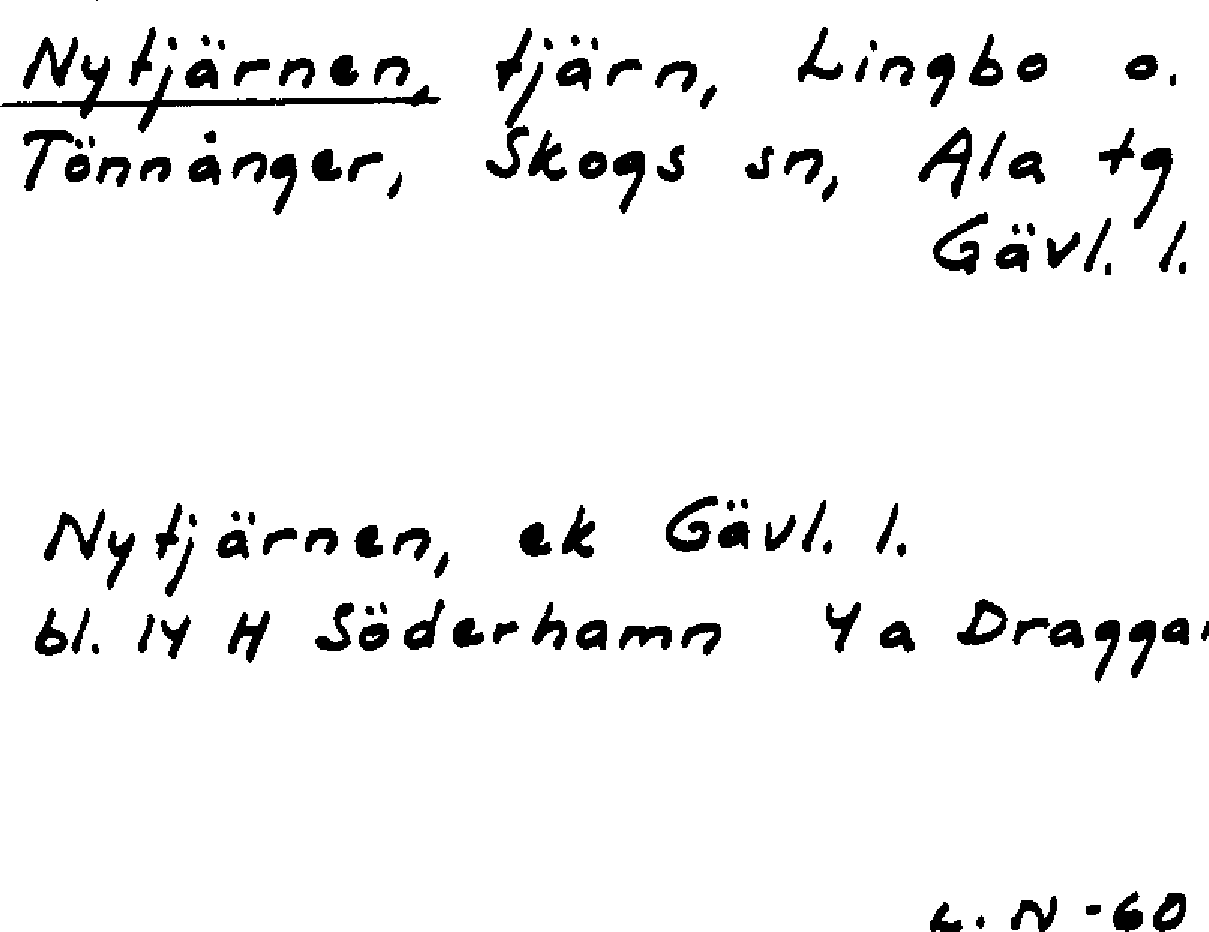 Nytjärnen, tjärn, Lingbo o.
Tönnånger, Skogs sn, Ala tg
Gävl. l.
Nytjärnen, ek Gävl. l.
bl. 14 H Söderhamn 4 a
L. N - 60